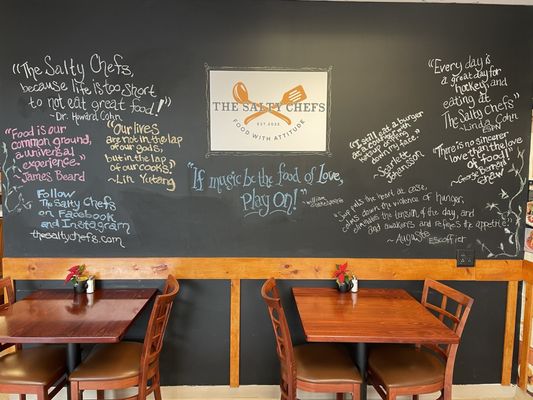 "The Salty Chefs,
because life is too short
to not eat great food!"
~ Dr. Howard Cohn
"Food is our
common ground,
a universal
experience"
~ James Beard
"Our lives
are not in the lap
of our gods,
but in the lap
of our cooks"
~ Lin Yutang
Follow
The Salty Chefs
on Facebook
and Instagram
thesaltychefs.com
THE SALTY CHEFS
EST. 2022
FOOD WITH ATTITUDE
"If music be the food of Love,
Play on!"
~William
"I will eat a burger
over anything
down my face."
~ Scarlett
Johansson
"Every day is
a great day for
hockey and
eating at
The Salty Chefs"
~ Linda Cohn
ESPN
"There is no sincerer
love than the love
of food!"
~ George Bernard
Shaw
"Soup puts the heart at ease,
calms down the violence of hunger,
eliminates the tension of the day,
and awakens and refines the appetite."
~ Auguste Escoffier